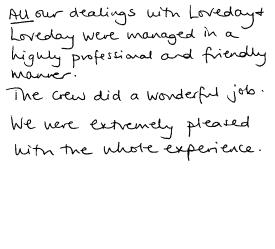 All our dealings with Loveday &
Loveday were managed in a
highly professional and friendly
manner.
The crew did a wonderful job.
We were extremely pleased
with the whole experience.